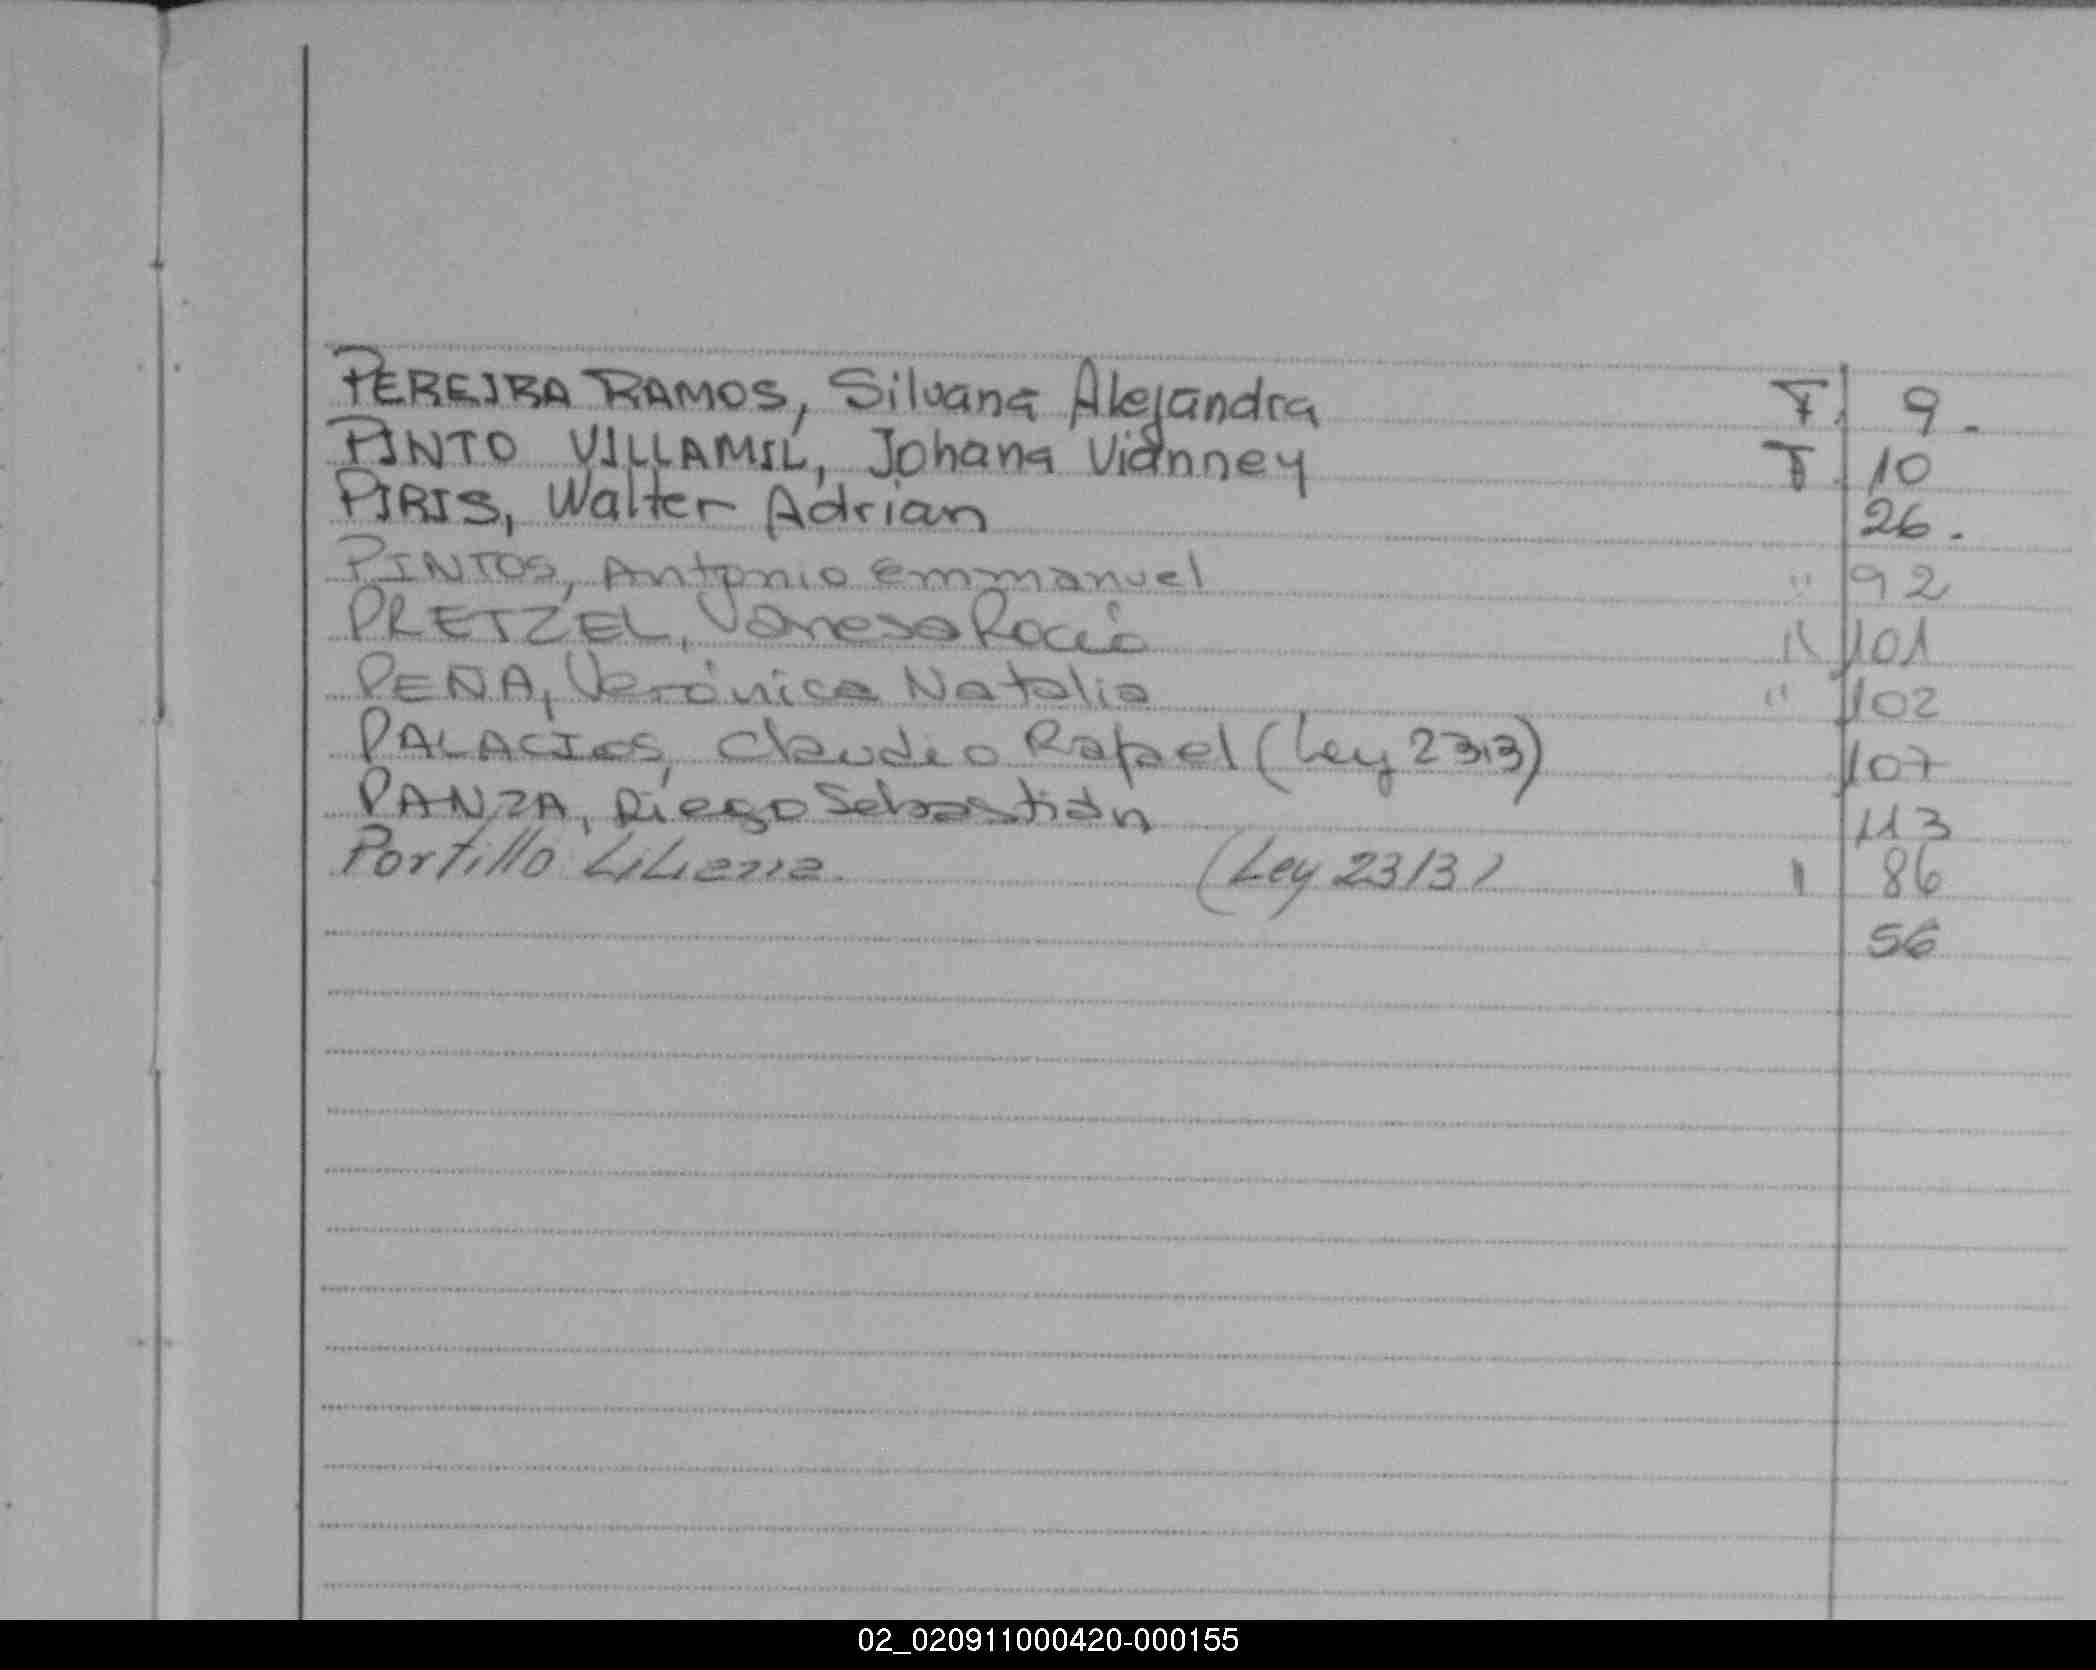 PEREIRA RAMOS, Silvana Alejandra F. 9.
PINTO VILLAMIL, Johana Vianney F. 10
PIRIS, Walter Adrian 26.
PINTOS, Antonio Emmanuel " 92
PRETZEL, Vanesa Rocío " 101
PEÑA, Verónica Natalia " 102
PALACIOS, Claudio Rafael (Ley 23.13) 107
PANZA, Diego Sebastián 113
Portillo Liliana. (Ley 2313) " 86
56
02_020911000420-000155